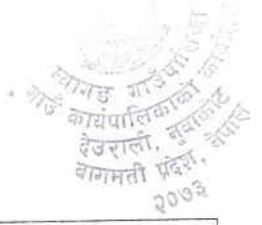 म्यागङ गाउँपालिका
गाउँ कार्यपालिकाको कार्यालय
देउराली, नुवाकोट
वागमती प्रदेश, नेपाल
२०७३